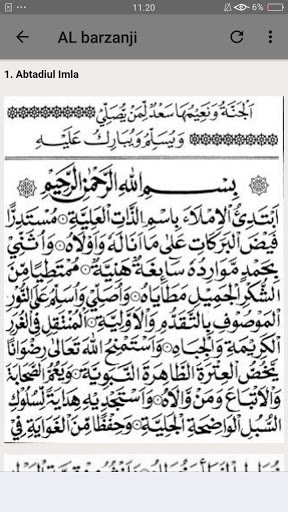 11.20
6%
AL barzanji
1. Abtadiul Imla
اَلْجَنَّةُ وَنَعِيْمُهَا سَعْدٌ لِمَنْ يُصَلِّيْ
وَيُسَلِّمُ وَيُبَارِكُ عَلَيْهِ
بِسْمِ اللهِ الرَّحْمٰنِ الرَّحِيْمِ
اَبْتَدِئُ الْاِمْلَاءَ بِاسْمِ الذَّاتِ الْعَلِيَّةِ مُسْتَدِرًّا
فَيْضَ الْبَرَكَاتِ عَلٰى مَا اَنَالَهُ وَاَوْلَاهُ وَاُثَنِّيْ
بِحَمْدٍ مَوَارِدُهُ سَائِغَةٌ هَنِيَّةٌ مُمْتَطِيًا مِنَ
الشُّكْرِ الْجَمِيْلِ مَطَايَاهُ وَاُصَلِّيْ وَاُسَلِّمُ عَلَى النُّوْرِ
الْمَوْصُوْفِ بِالتَّقَدُّمِ وَالْاَوَّلِيَّةِ الْمُنْتَقِلِ فِي الْغُرَرِ
الْكَرِيْمَةِ وَالْجِبَاهِ وَاَسْتَمْنِحُ اللهَ تَعَالٰى رِضْوَانًا
يَخُصُّ الْعِتْرَةَ الطَّاهِرَةَ النَّبَوِيَّةَ وَيَعُمُّ الصَّحَابَةَ
وَالْاَتْبَاعَ وَمَنْ وَالَاهُ وَاَسْتَجْدِيْهِ هِدَايَةً لِسُلُوْكِ
السُّبُلِ الْوَاضِحَةِ الْجَلِيَّةِ وَحِفْظًا مِنَ الْغَوَايَةِ فِيْ